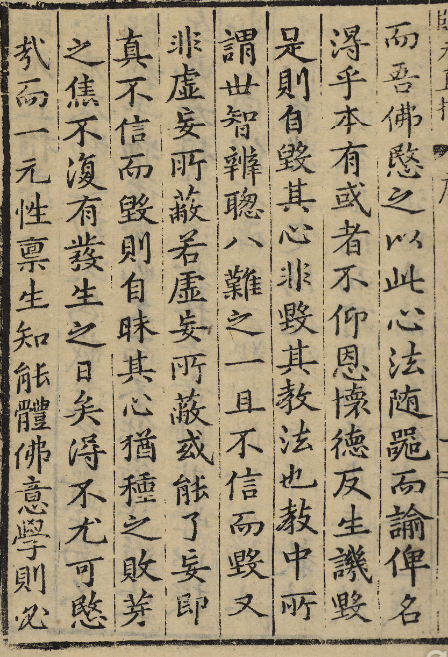 而吾佛愍之以此心法随噐而諭俾名
淂乎本有或者不仰恩懷德反生譏毀
是則自毀其心非毀其教法也教中所
謂世智辨聰八難之一且不信而毀又
非虛妄所蔽若虛妄所蔽或能了妄即
真不信而毀則自昧其心猶種之敗芽
之焦不復有發生之日矣淂不尤可愍
㢤而一元性禀生知能體佛意學則必